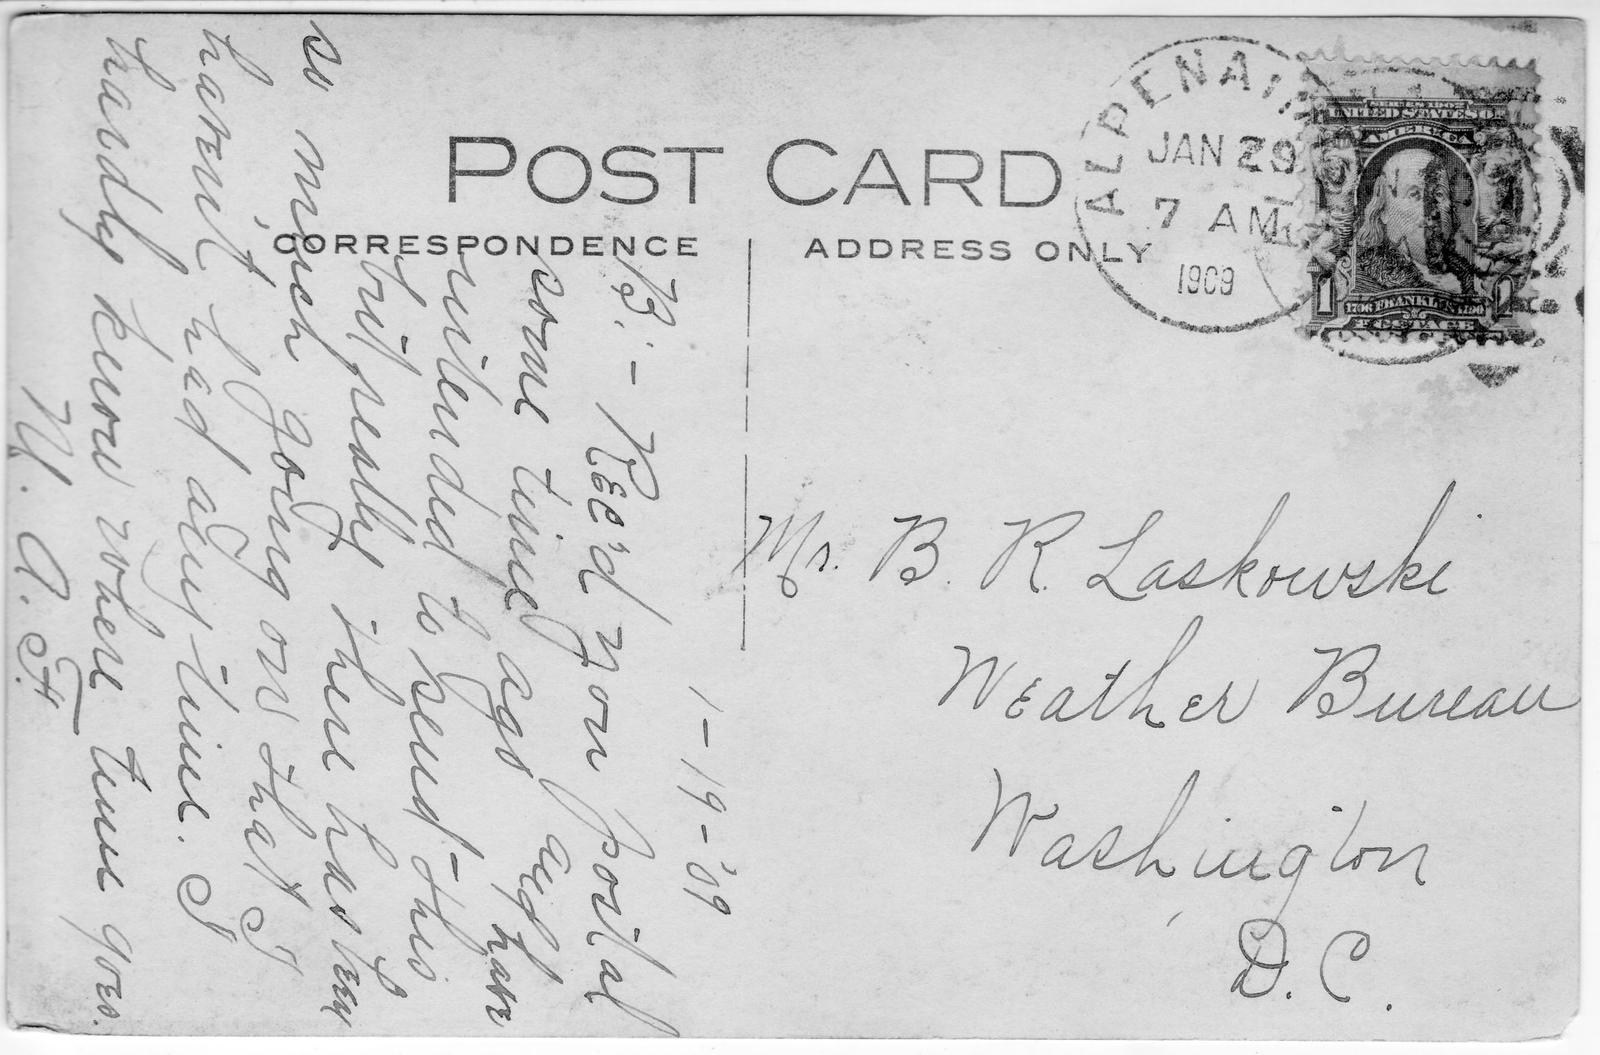 POST CARD
CORRESPONDENCE
ADDRESS ONLY
ALPENA
JAN 29
7 AM
1909
SERIES 1902
UNITED STATES OF
AMERICA
1706 FRANKLIN 1790
POSTAGE
1-19-'09
B:- Rec'd your postal
some time ago and have
intended to send this
but really there has been
so much going on that I
haven't had any time. I
hardly know where time goes.
Mr. B. R. Laskowski
Weather Bureau
Washington
D.C.